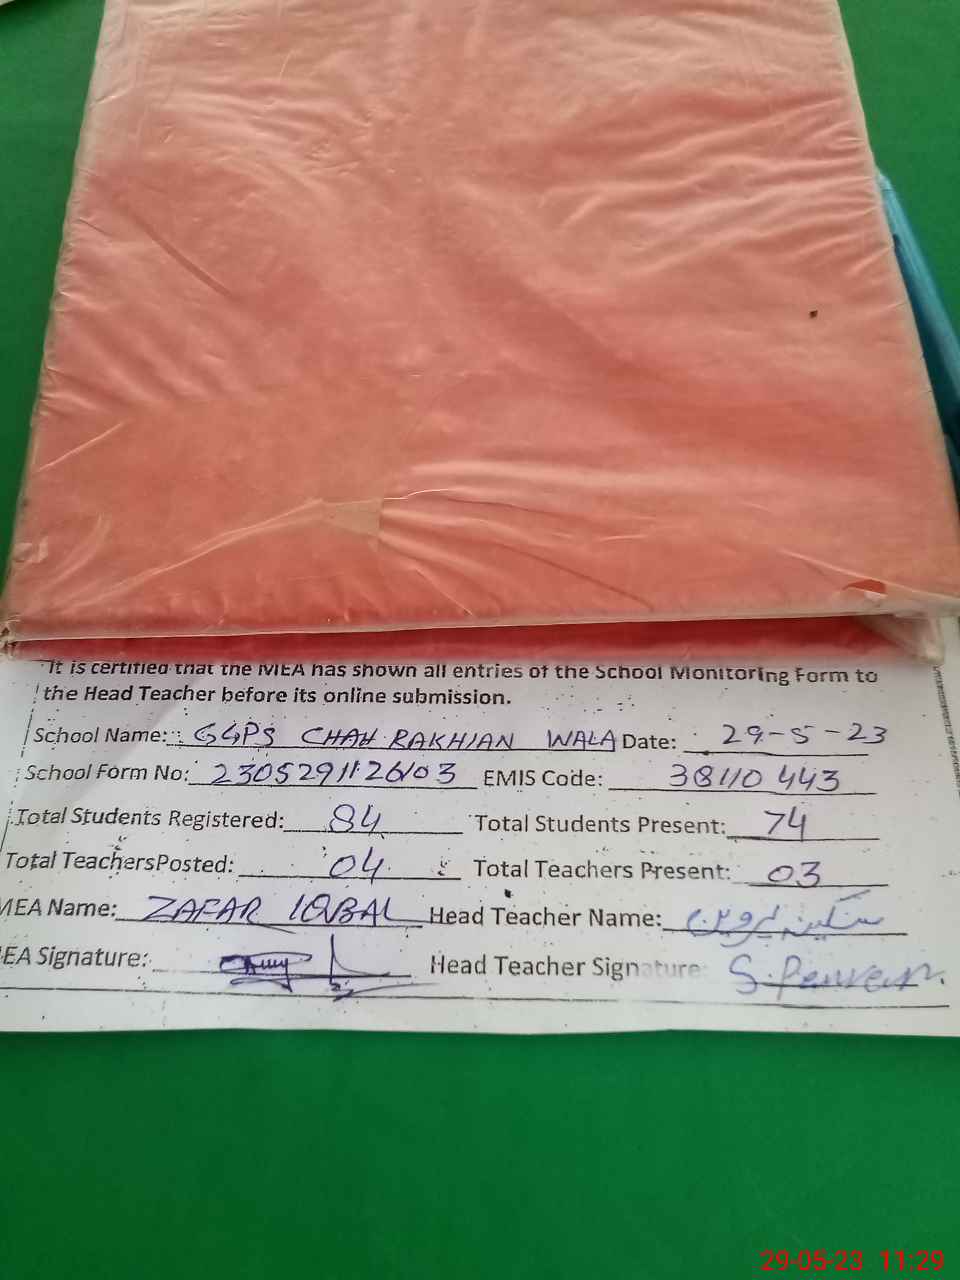 It is certified that the MEA has shown all entries of the School Monitoring Form to
the Head Teacher before its online submission.
School Name: GGPS CHAH RAKHIAN WALA Date: 29-5-23
School Form No: 2305291126103 EMIS Code: 38110443
Total Students Registered: 84 Total Students Present: 74
Total TeachersPosted: 04 Total Teachers Present: 03
MEA Name: ZAFAR IQBAL Head Teacher Name: سکینہ پروین
EA Signature: Head Teacher Signature: S. Perveen.
29-05-23 11:29